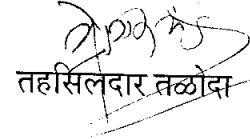 तहसिलदार तळोदा